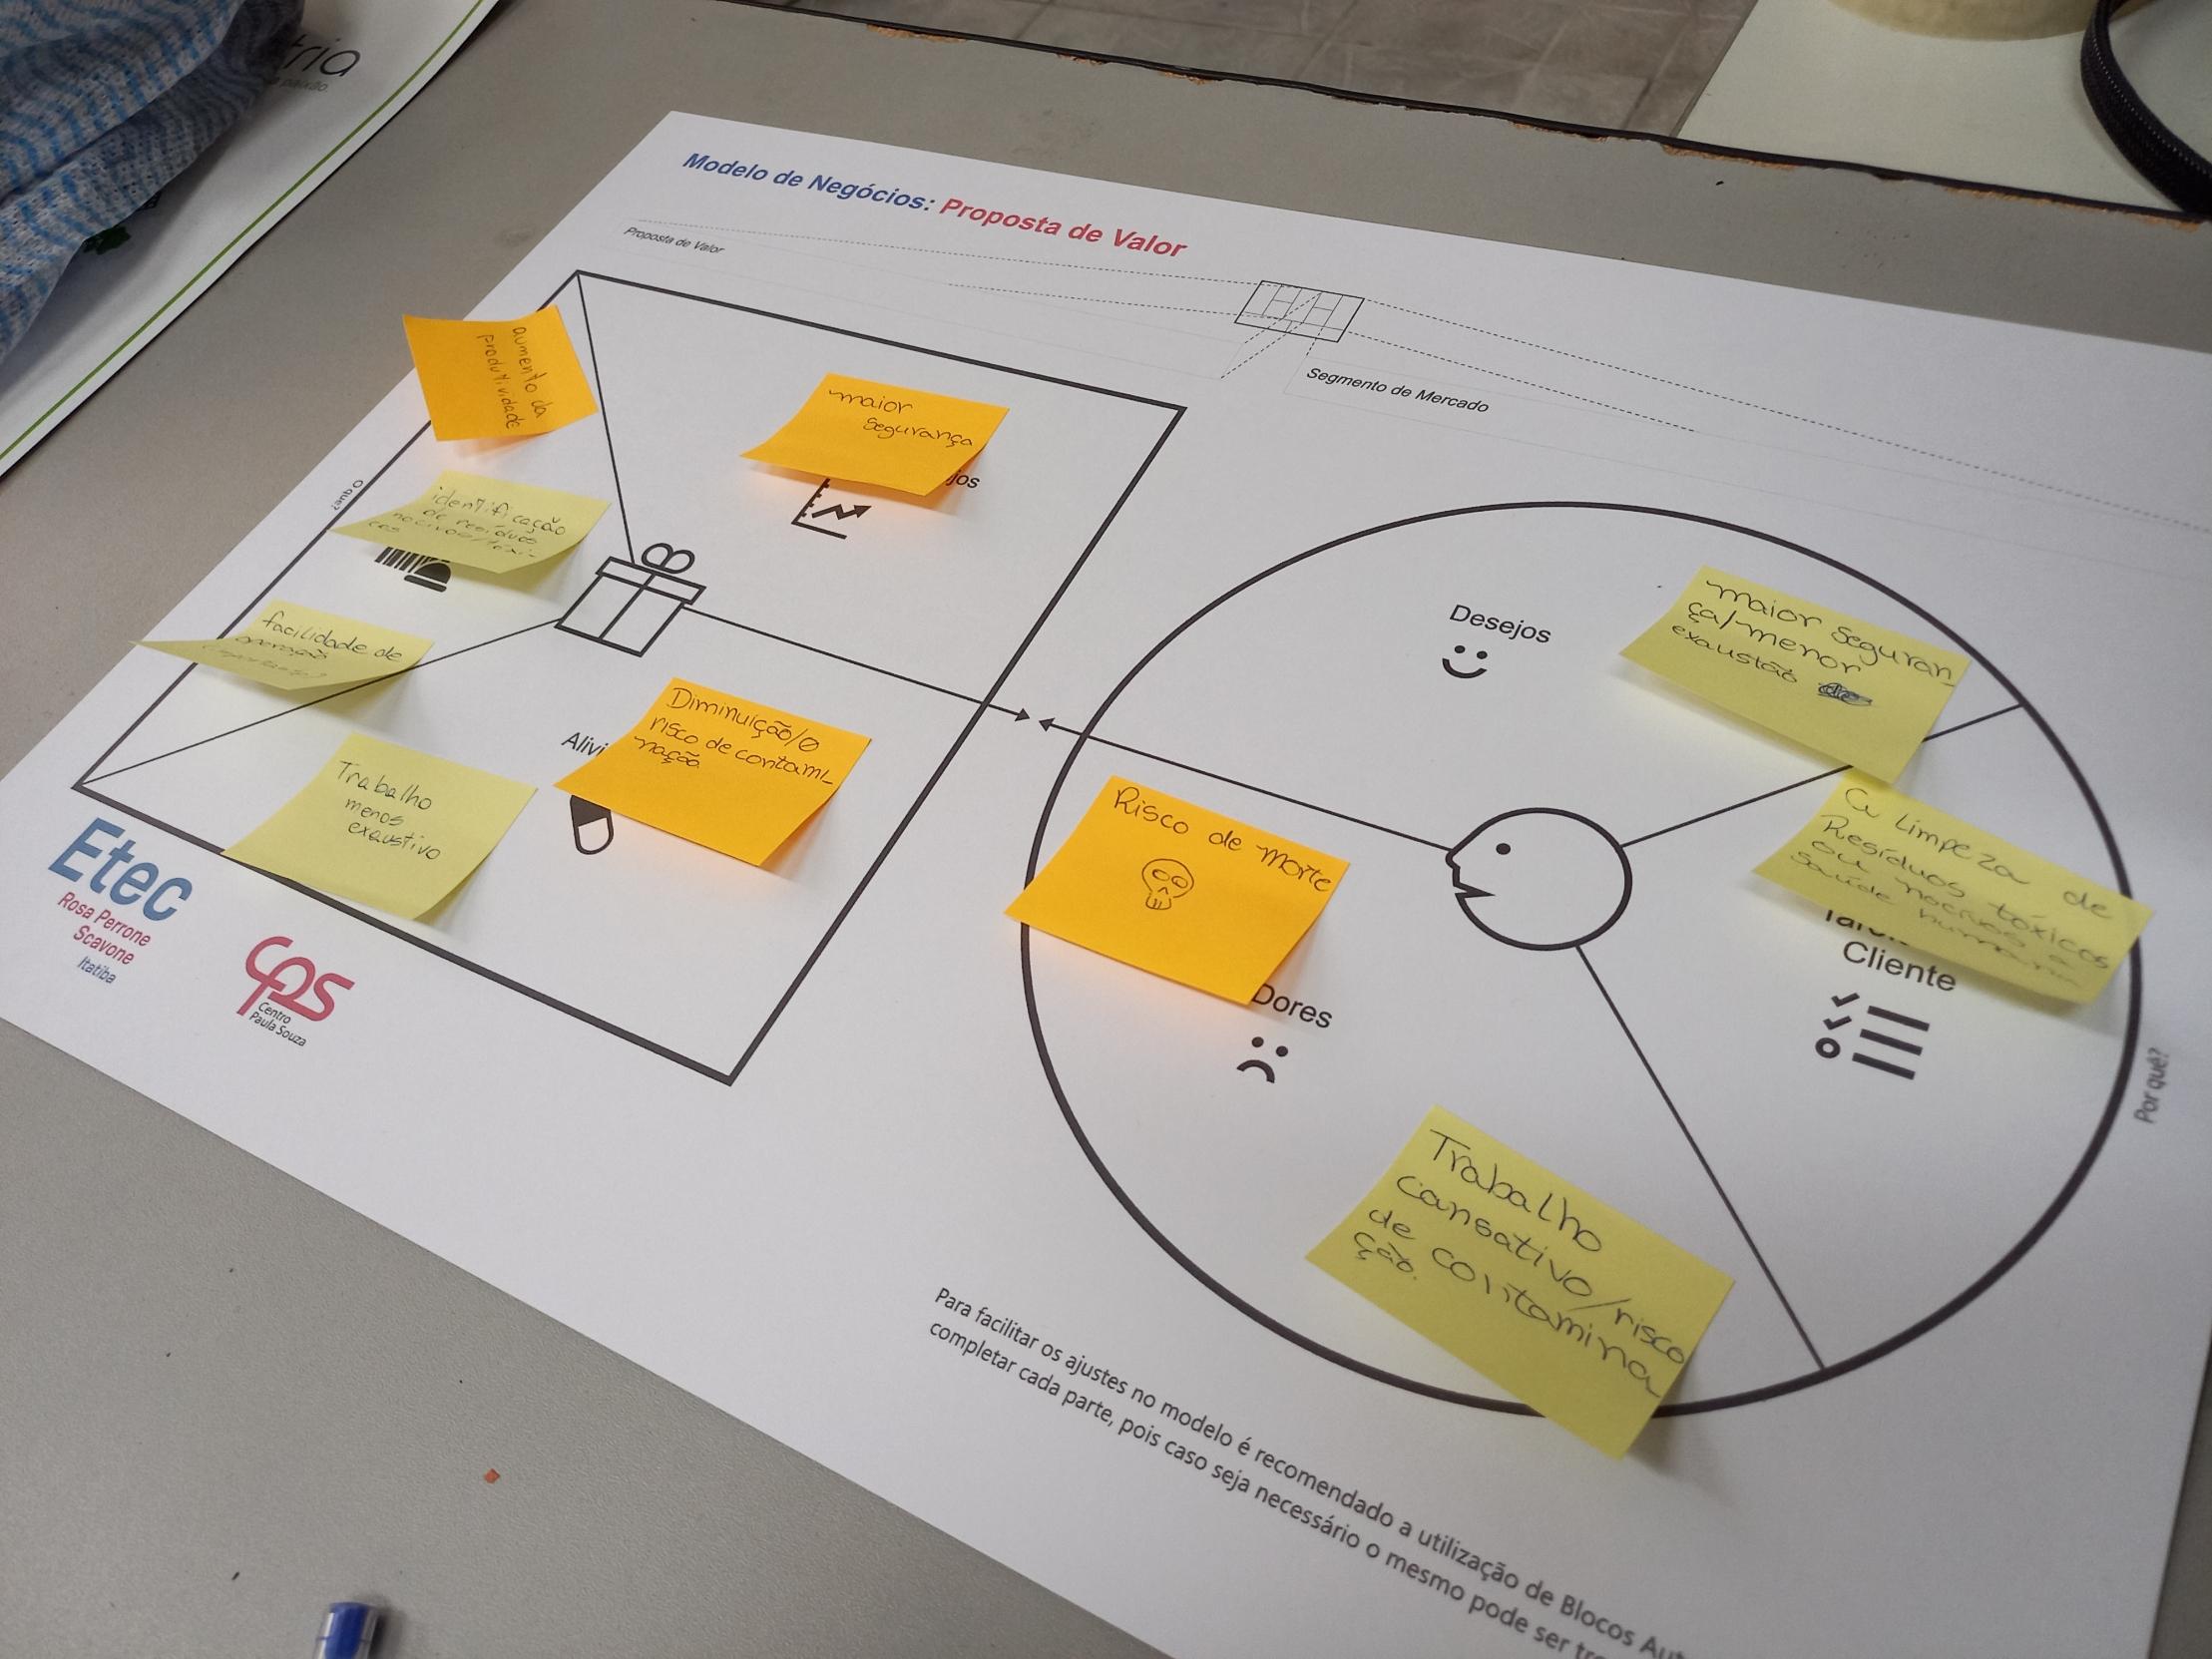 tria
paixão.
Modelo de Negócios: Proposta de Valor
Proposta de Valor
Segmento de Mercado
O quê?
aumento da
produtividade
maior
segurança
jos
identificação
de resíduos
nocivos/tóxi-
cos
facilidade de
operação
Trabalho
menos
exaustivo
Alivi
Diminuição/0
risco de contami-
nação.
Desejos
maior seguran-
ça/menor
exaustão
A limpeza de
Resíduos tóxicos
ou nocivos a
saúde humana
Cliente
Risco de morte
Dores
Trabalho
cansativo/risco
de contamina
ção.
Por quê?
Etec
Rosa Perrone
Scavone
Itatiba
cps
Centro
Paula Souza
Para facilitar os ajustes no modelo é recomendado a utilização de Blocos Aut
completar cada parte, pois caso seja necessário o mesmo pode ser tro